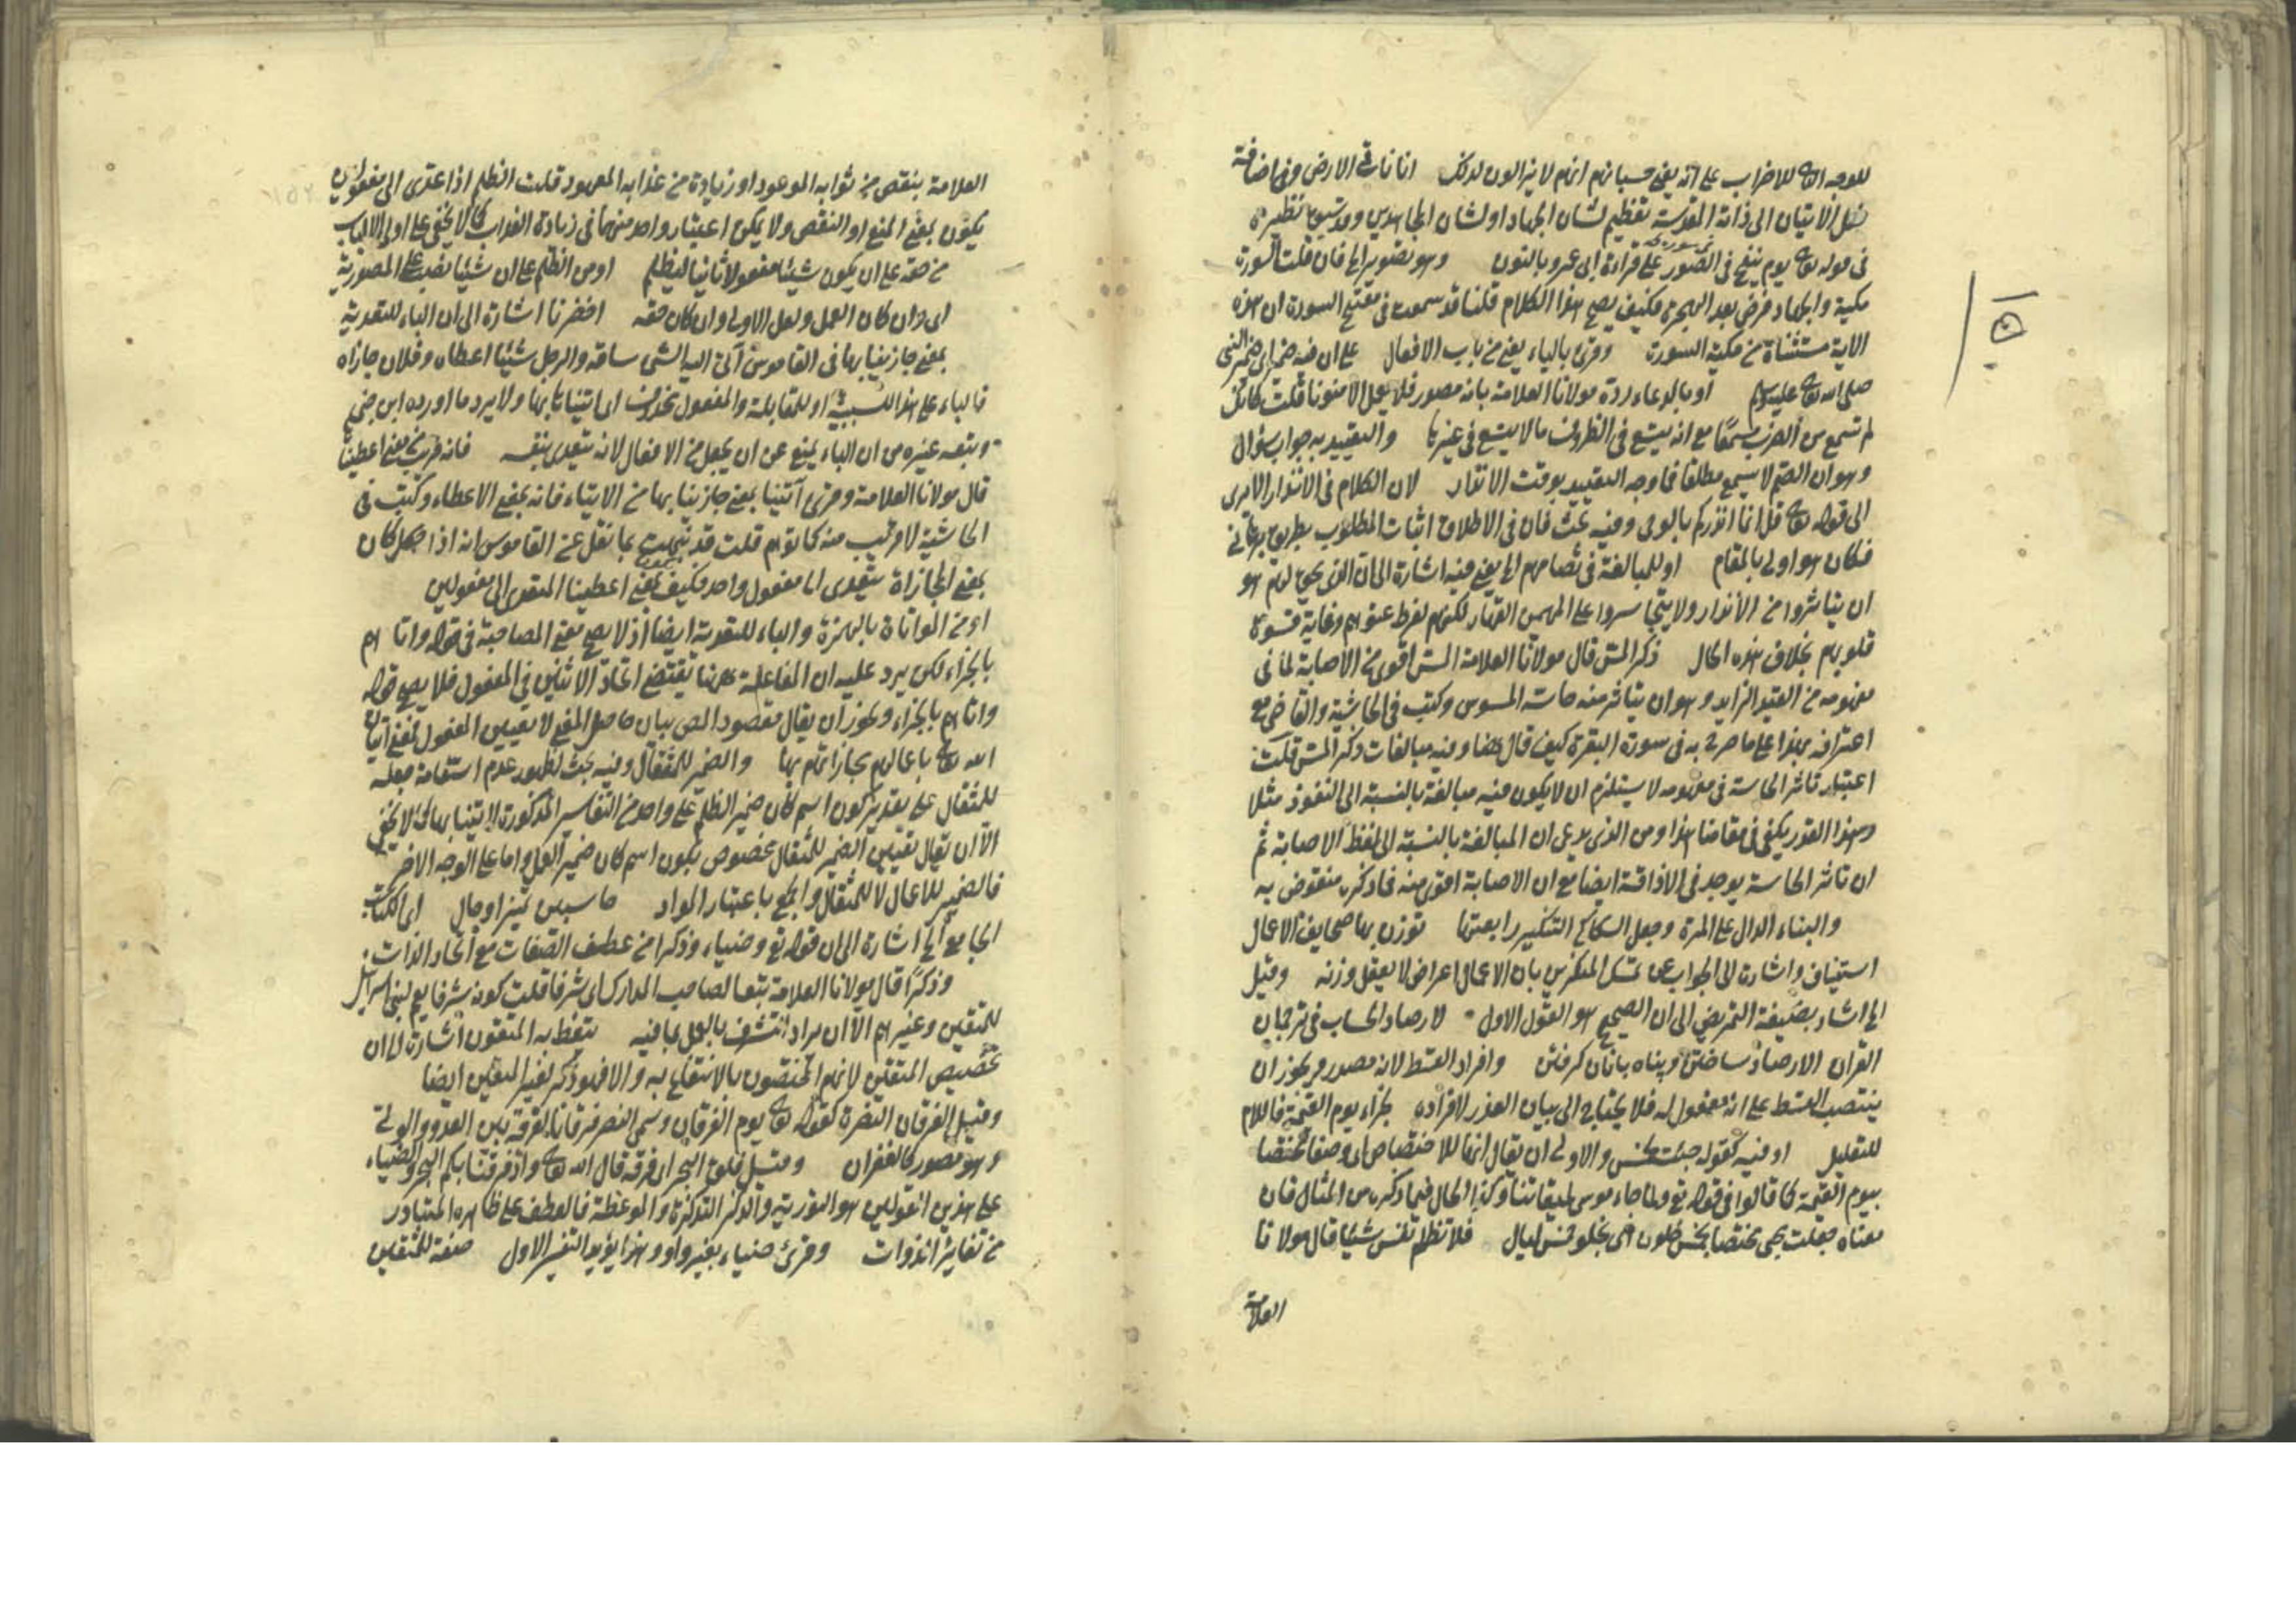 للوجه الثا للاضراب على انه يعنى حسبانهم انهم لا يزالون لذلك انا ناتى الارض وفى اضافة
فعل الاتيان الى ذاته المقدسة تعظيم لشان الجهاد او لشان المجاهدين وقد سبق نظيره
فى قوله تعا يوم ينفخ فى الصور على قراءة ابى عمرو بالنون وهو تصوير الخ فان قلت السورة
مكية والجهاد فرض بعد الهجرة فكيف يصح هذا الكلام قلنا قد سمعت فى مفتتح السورة ان هذه
الاية مستثناة من مكية السورة وقرئ بالياء يعنى من باب الافعال على ان فيه ضمير النبى
صلى الله تعا عليه وسلم او بالدعاء رده مولانا العلامة بانه مصدر فلا يعمل الا منونا قلت كانك
لم تسمع من الضرب مسمعا مع انه يتسع فى الظروف ما لا يتسع فى غيرها والتقييد به جواب سؤال
وهو ان الصم لا يسمع مطلقا فما وجه التقييد بوقت الانذار لان الكلام فى الانذار الا ترى
الى قوله تعا قل انما انذركم بالوحى وفيه بحث فان فى الاطلاق اثبات المطلوب بطريق برهانى
فكان هو اولى بالمقام او للمبالغة فى تصامهم الخ يعنى فيه اشارة الى ان الذى يحق لهم هو
ان يتاثروا من الانذار ولا يتجاسروا على المهيمن القهار لكنهم لفرط عتوهم وغاية قسوة
قلوبهم بخلاف هذه الحال ذكر المس قال مولانا العلامة المس اقوى من الاصابة لما فى
مفهومه من القيد الزايد وهو ان يتاثر منه حاسة الممسوس وكتب فى الحاشية والقاضى مع
اعترافه بهذا على ما صرح به فى سورة البقرة كيف قال هنا وفيه مبالغات ذكر المس قلت
اعتبار تاثر الحاسة فى مفهومه لا يستلزم ان لا يكون فيه مبالغة بالنسبة الى النفوذ مثلا
وهذا القدر يكفى فى مقامنا هذا ومن الذى يدعى ان المبالغة بالنسبة الى لفظ الاصابة ثم
ان تاثر الحاسة يوجد فى الاذاقة ايضا مع ان الاصابة اقوى منه فما ذكره منقوض به
والبناء الدال على المرة وجعل السكاكى التنكير رابعتها توزن بها صحايف الاعمال
استيناف واشارة الى الجواب عن تمسك المنكرين بان الاعمال اعراض لا يعقل وزنه وقيل
الخ اشار بصيغة التمريض الى ان الصحيح هو القول الاول لارصاد الحساب فى ترجمان
القران الارصاد ساختن وپناه بانان كرفتن وافراد القسط لانه مصدر ويجوز ان
ينتصب القسط على انه مفعول له فلا يحتاج الى بيان العذر لافراده لجزاء يوم القيمة فاللام
للتعليل او فيه كقوله جئت لخمس والاولى ان يقال انها للاختصاص اى وصفا مختصا
بيوم القيمة كما قالوا فى قوله تع ولما جاء موسى لميقاتنا وكذا الحال فيما ذكره من المثال فان
معناه جعلت مجى مختصا بخمس خلون اى بخلو خمس ليال فلا تظلم نفس شيئا قال مولانا
العلامة
العلامة بنقص من ثوابه الموعود او زيادة من عذابه المعهود قلت الظلم اذا عدى الى مفعولين
يكون بمعنى المنع او النقص ولا يمكن اعتبار واحد منهما فى زيادة العذاب كما لا يخفى على اولى الالباب
من حقه على ان يكون شيئا مفعولا ثانيا ليظلم او من الظلم على ان شيئا نصب على المصدرية
اى وان كان العمل ولعل الاولى وان كان حقه احضرنا اشارة الى ان الباء للتعدية
بمعنى جازينا بها فى القاموس آتى اليه الشى ساقه والرجل شيئا اعطاه وفلان جازاه
فالباء على هذا للسببية او للمقابلة والمفعول محذوف اى اتيناه بها ولا يرد ما اورده ابن جنى
وتبعه غيره من ان الباء يمنع عن ان يجعل من الافعال لانه يتعدى بنفسه فانه قريب من اعطينا
قال مولانا العلامة وقرئ آتينا بمعنى جازينا بها من الايتاء فانه بمعنى الاعطاء وكتب فى
الحاشية لا قريب منه كما توهم قلت قد نبهت بما نقل عن القاموس انه اذا جعل كان
بمعنى المجازاة يتعدى الى مفعول واحد فكيف بمعنى اعطينا المتعدى الى مفعولين
او من المواتاة بالهمزة والباء للتعدية ايضا اذ لا يصح معنى المصاحبة فى قوله واتاهم
بالجزاء لكن يرد عليه ان المفاعلة ههنا يقتضى اتحاد الاثنين فى المفعول فلا يصح قوله
واتاهم بالجزاء ويجوز ان يقال مقصود المص بيان حاصل المعنى لا تعيين المفعول فمعنى اتيان
الله تعا باعمالهم مجازاتهم بها والضمير للمثقال وفيه بحث لظهور عدم استقامة جعله
للمثقال على تقدير كون اسم كان ضمير الظلم على واحد من التفاسير المذكورة لاتينا بها كما لا يخفى
الا ان يقال تعيين الضمير للمثقال مخصوص بكون اسم كان ضمير العمل واما على الوجه الاخر
فالضمير للاعمال لا للمثقال والجمع باعتبار المواد حاسبين تميز او حال اى الكتاب
الجامع الخ اشارة الى ان قوله تع وضياء وذكرا من عطف الصفات مع اتحاد الذات
وذكرا قال مولانا العلامة تبعا لصاحب المدارك اى شرفا قلت كونه شرفا يعم لبنى اسرائيل
للمتقين وغيرهم الا ان يراد التشرف بالعمل بما فيه يتعظ به المتقون اشارة الى ان
تخصيص المتقين لانهم المختصون بالانتفاع به والا فهو ذكر لغير المتقين ايضا
وقيل الفرقان النصرة كقوله تعا يوم الفرقان وسمى النصر فرقانا لفرقه بين العدو والولى
وهو مصدر كالغفران وقيل فلق البحر اى فرقه قال الله تعا واذ فرقنا بكم البحر والضياء
على هذين القولين هو التورية والذكر التذكرة والموعظة فالعطف على ظاهره المتبادر
من تغاير الذوات وقرئ ضياء بغير واو وهذا يؤيد التفسير الاول صفة للمتقين